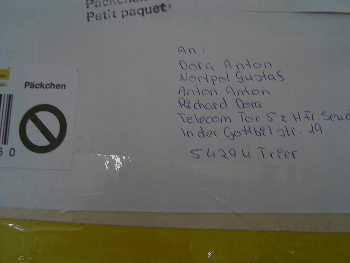 Päckchen
Petit paquet
An:
Dora Anton
Nordpol Gustas
Anton Anton
Richard Dora
Telecom Tor 5 z.H. Fr.
In der Gottbill str. 19
54294 Trier
Päckchen
60